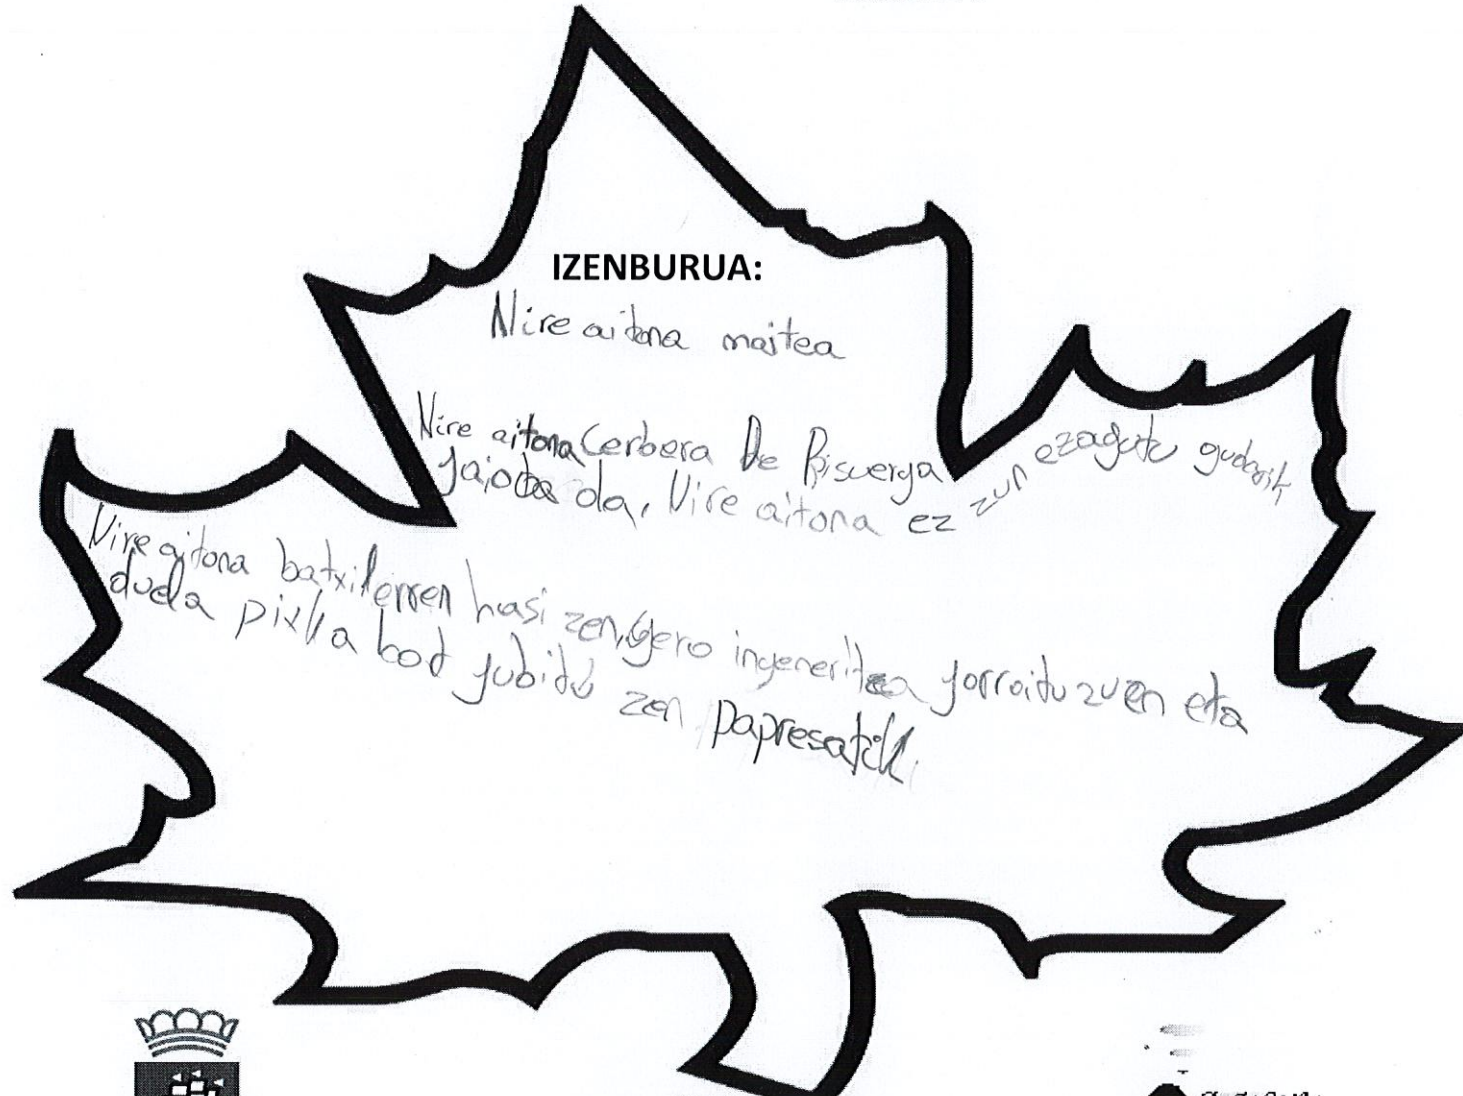 IZENBURUA:
Nire aitona maitea
Nire aitona Cerbera De Pisuerga
jaioa da, Nire aitona ez zun ezagutu gudarik
Nire aitona batxilerren hasi zen, Gero ingeneritza jorraitu zuen eta
duela pixka bat jubitu zen papresatik.